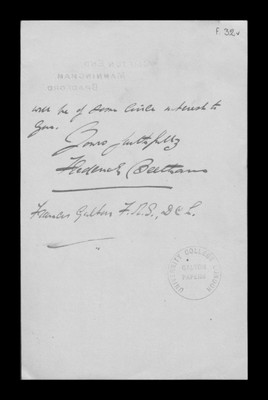 F. 32v
MANNINGHAM
BRADFORD
will be of some little interest to
you.
Yours faithfully
Frederick
Francis Galton F.R.S., D.C.L.
UNIVERSITY COLLEGE LONDON
GALTON
PAPERS